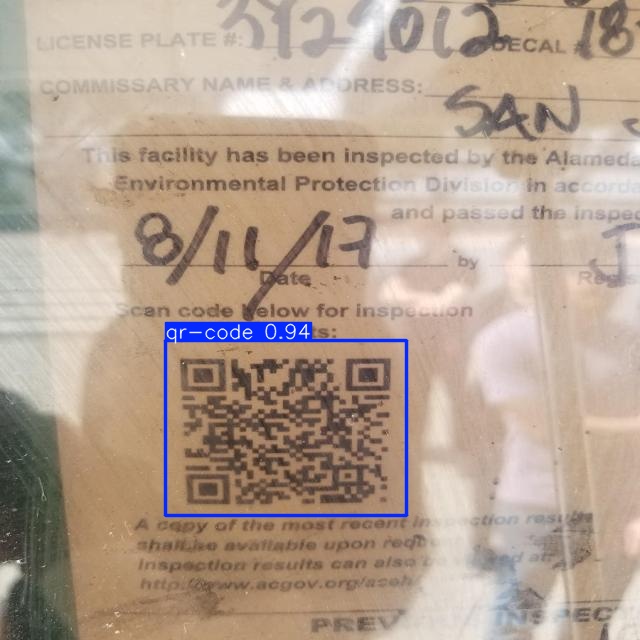 LICENSE PLATE #: DECAL # 18
COMMISSARY NAME & ADDRESS:
SAN
This facility has been inspected by the Alameda
Environmental Protection Division in accorda
and passed the inspec
8/11/17 by
Date
Scan code below for inspection
ts:
qr-code 0.94
A copy of the most recent inspection results
shall be available upon req
inspection results can also be
http://www.acgov.org/aceh
INSPEC